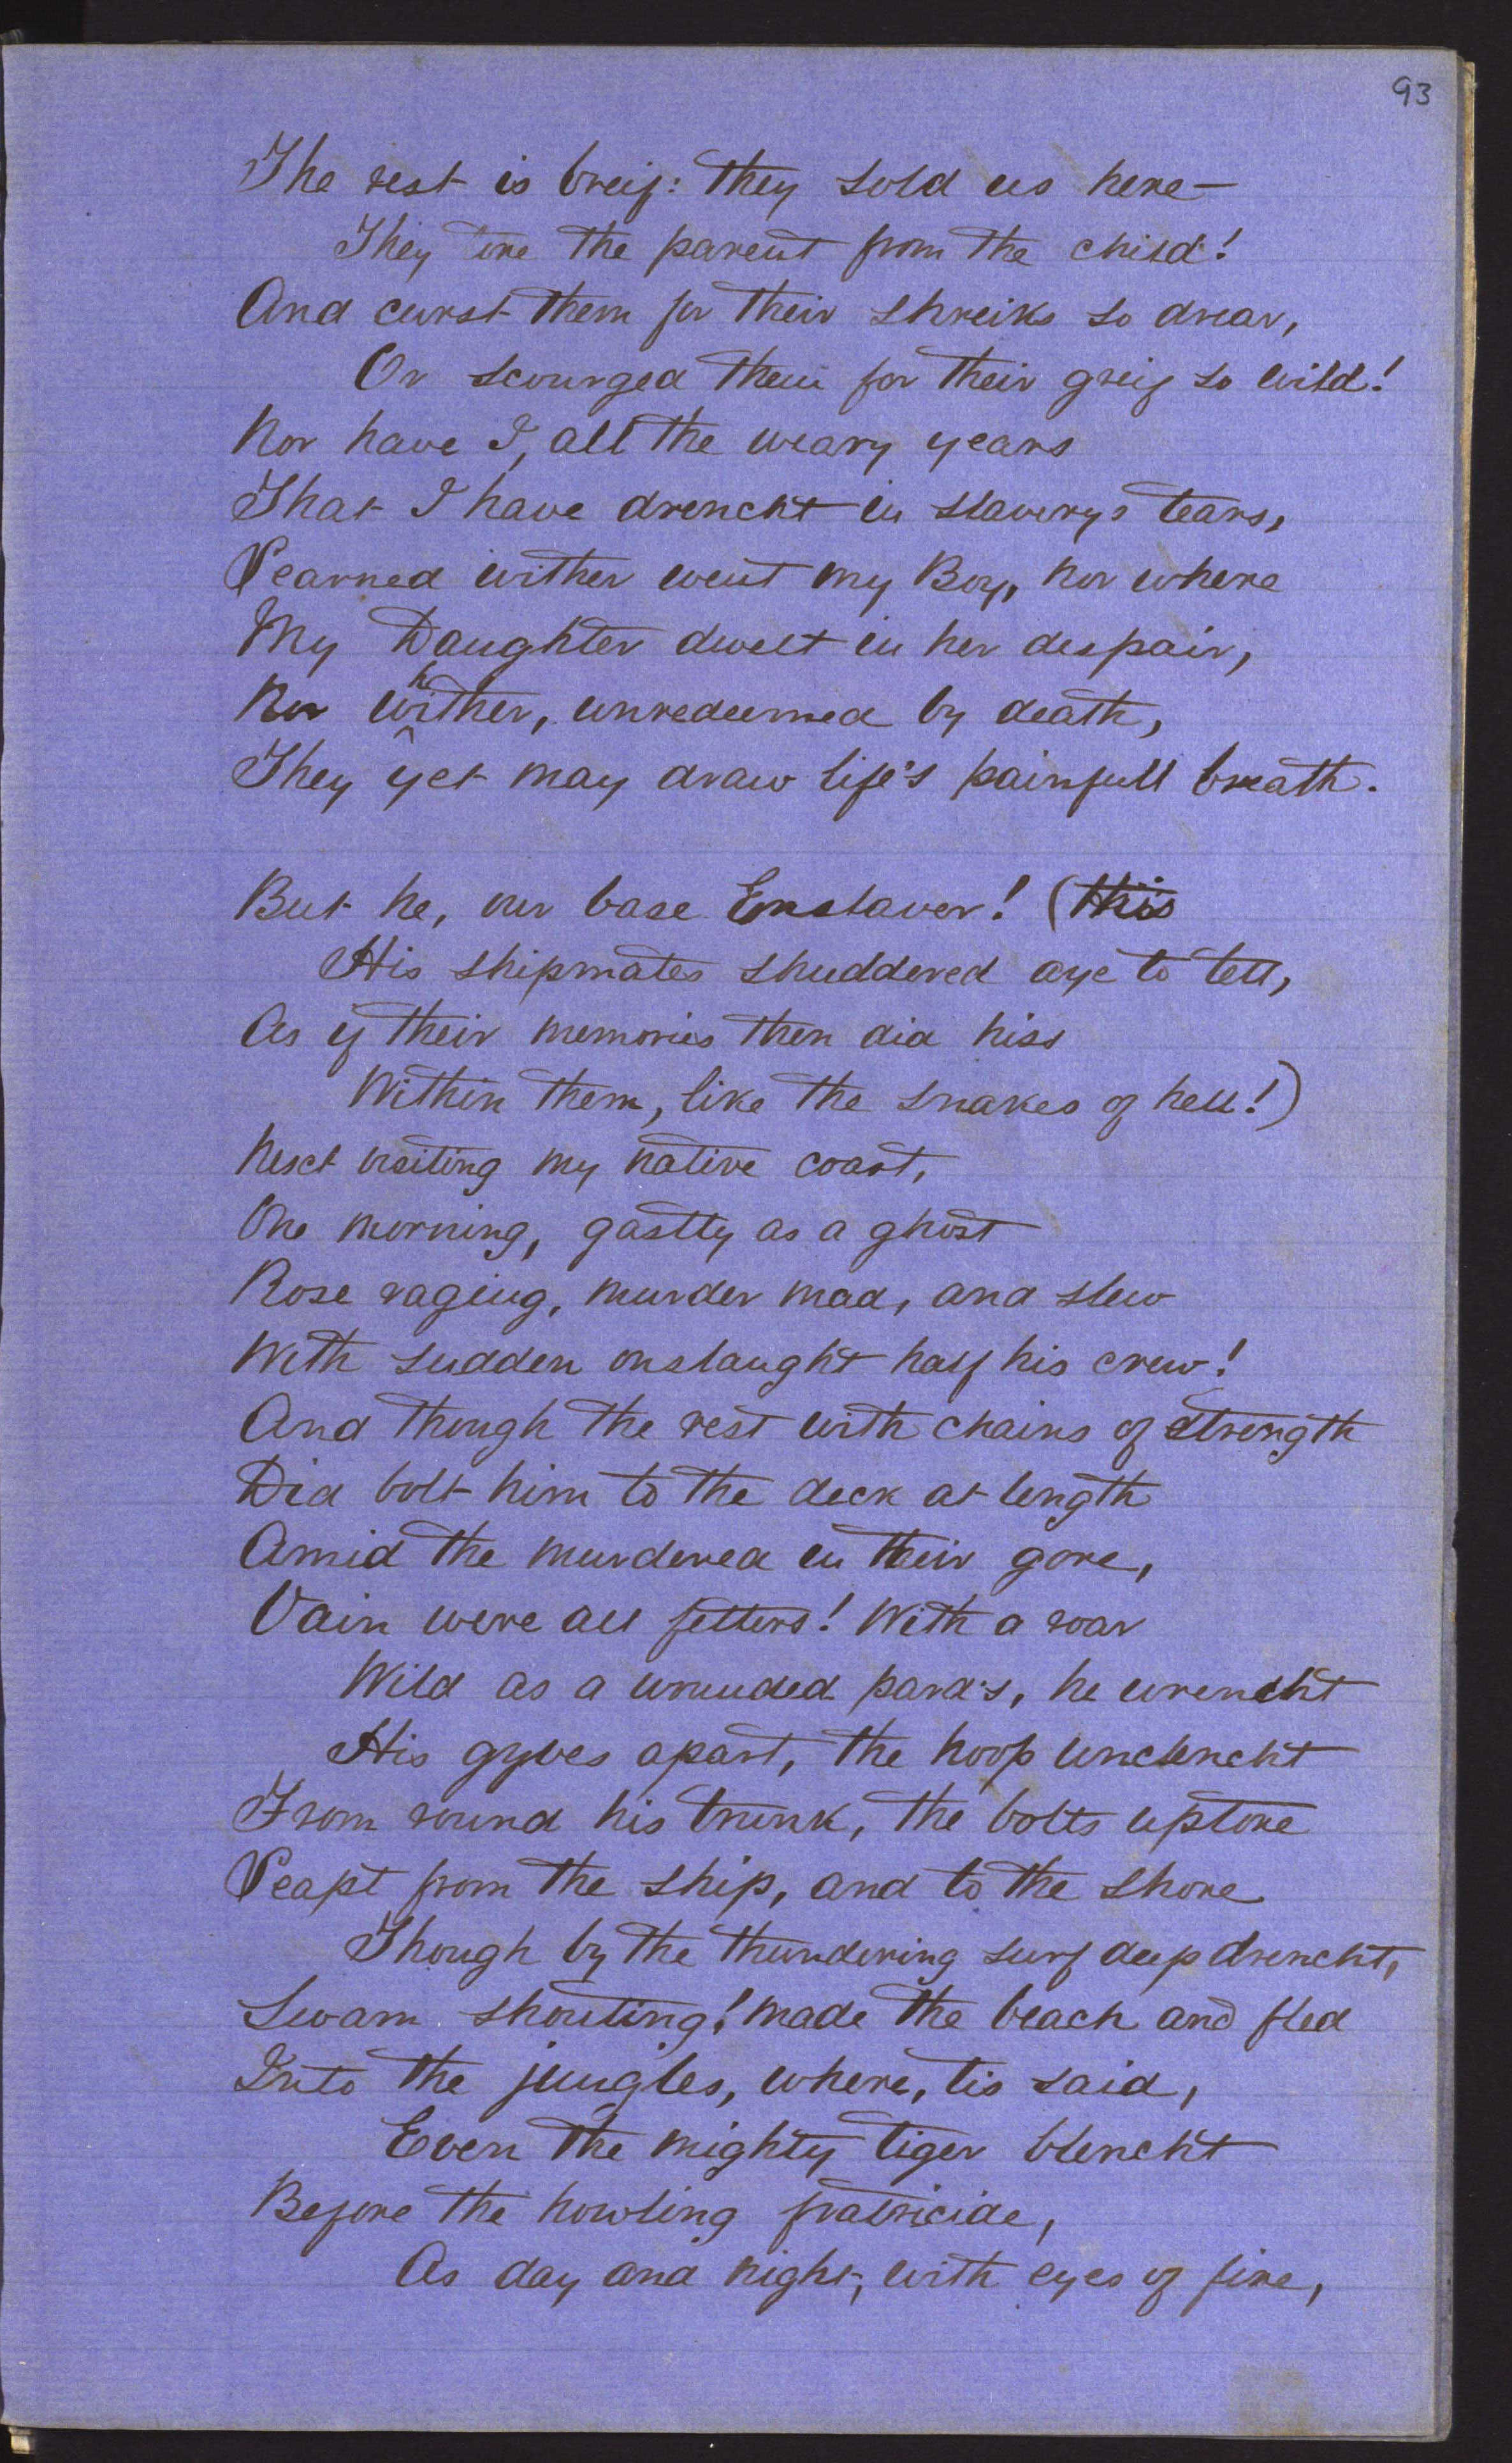 93
The rest is breif: they sold us here—
They tore the parent from the child!
And curst them for their shreiks so drear,
Or scourged them for their greif so wild!
Nor have I, all the weary years
That I have drencht in slavery's tears,
Learned wither went my Boy, nor where
My Daughter dwelt in her despair,
Nor whither, unredeemed by death,
They yet may draw life's painfull breath.
But he, our base Enslaver! (this
His shipmates shuddered aye to tell,
As if their memories then did hiss
Within them, like the snakes of hell!)
Next visiting my native coast,
One morning, gastly as a ghost
Rose raging, murder mad, and slew
With sudden onslaught half his crew!
And though the rest with chains of strength
Did bolt him to the deck at length
Amid the murdered in their gore,
Vain were all fetters! With a roar
Wild as a wounded pard's, he wrencht
His gyves apart, the hoop unclencht
From round his trunk, the bolts uptore
Leapt from the ship, and to the shore
Though by the thundering surf deep drencht,
Swam shouting! made the beach and fled
Into the jungles, where, tis said,
Even the mighty tiger blencht
Before the howling fratricide,
As day and night, with eyes of fire,